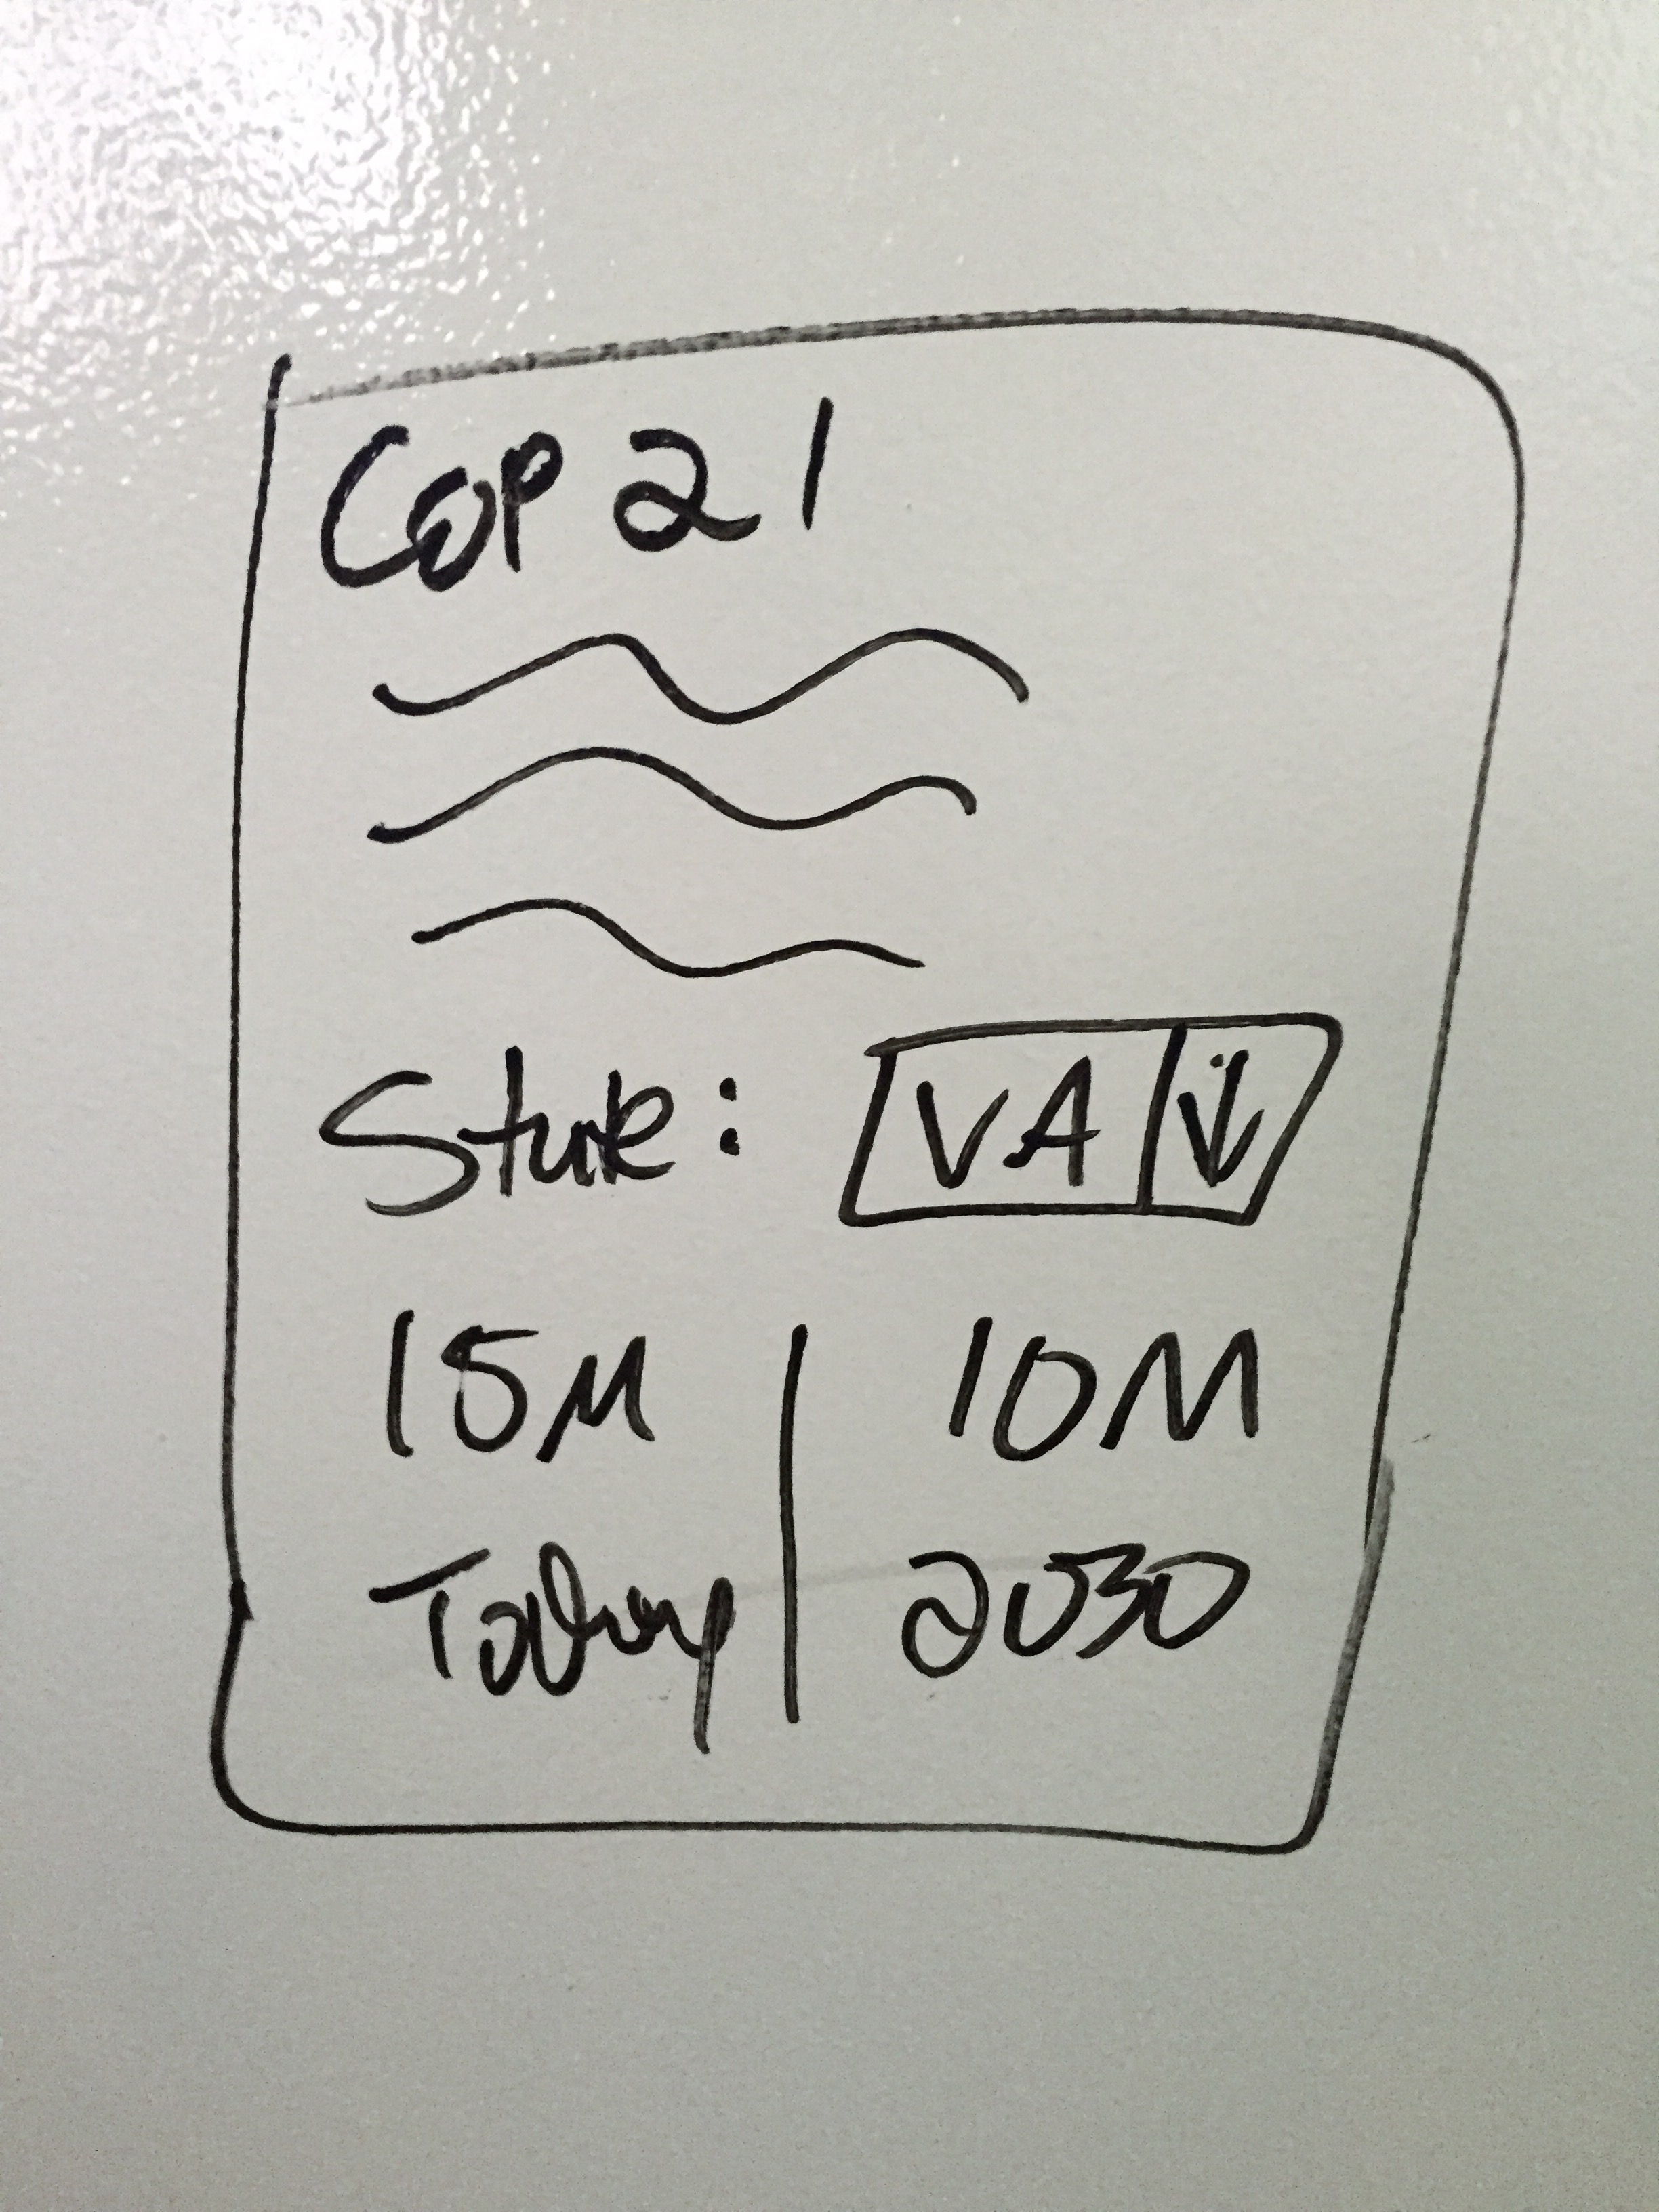 COP 21
State:
VA
15M
10M
Today
2030